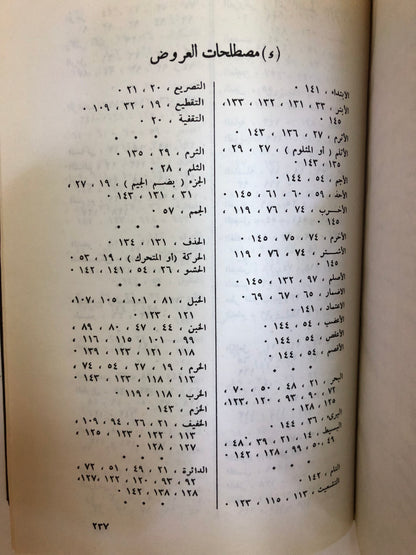 (ء) مصطلحات العروض
الابتداء ، ١٤١ ٠
الأبتر ، ٣٣ ، ١٣١ ، ١٣٢ ، ١٣٣ ،
١٤٥ ٠
الأثرم ، ٢٧ ، ١٣٦ ، ١٤٣ ٠
الأثلم ( أو المثلوم ) ، ٢٧ ، ٢٩ ،
١٣٥ ، ١٤٣ ٠
الأجم ، ٥٤ ، ١٤٤ ٠
الأحذ ، ٥٩ ، ٦٠ ، ٦١ ، ١٤٥ ٠
الأخرب ، ٧٤ ، ٧٦ ، ١١٩ ،
١٤٥ ٠
الأخرم ، ٧٤ ، ٧٥ ، ١٤٥ ٠
الأشتر ، ٧٤ ، ٧٦ ، ١١٩
١٤٥ ٠
الأصلم ، ٩٧ ، ١٣٢ ، ١٤٥ ٠
الاضمار ، ٦٥ ، ٦٧ ، ٦٩ ٠
الاعتماد ، ١٤١ ٠
الأعضب ، ٥٤ ، ١٤٤ ٠
الأعقص ، ٥٤ ، ١٤٤ ٠
الأقصم ، ٥٤ ، ١٤٤ ٠
* * *
البحر ، ٢١ ، ٤٨ ، ٥٠ ، ٧٠ ،
٧٢ ، ٩٠ ، ٩٣ ، ١٢٠ ، ١٢٣ ،
١٢٥ ، ١٢٨ ٠
البرىء ، ٣٦ ، ١٤٤ ٠
البسيط ، ١٤ ، ٢١ ، ٣٩ ، ٤٨ ،
٤٩ ، ٥٠ ، ٩٩ ، ١٢٨ ، ١٤٢ ٠
* * *
التام ، ١٤٢ ٠
التشعيث ، ١١٣ ، ١١٥ ، ١٢٣ ٠
التصريع ، ٢٠ ، ٢١ ٠
التقطيع ، ١٩ ، ٣٢ ، ١٠٩ ٠
التقفية ، ٢٠ ٠
* * *
الثرم ، ٢٩ ، ١٣٥ ٠
الثلم ، ٢٨ ٠
الجزء ( بضم الجيم ) ، ١٩ ، ٢٧ ،
٣١ ، ١٣١ ، ١٤٣ ٠
الجمم ، ٥٧ ٠
* * *
الحذف ، ١٣١ ، ١٣٤ ٠
الحركة ( أو المتحرك ) ، ١٩ ، ٥٣ ٠
الحشو ، ٢٦ ، ٥٤ ، ١٤١ ، ١٤٢ ٠
* * *
الخبل ، ٨١ ، ١٠١ ، ١٠٥ ، ١٠٧ ،
١٢١ ، ١٢٣ ٠
الخبن ، ٤٤ ، ٤٧ ، ٨٠ ، ٨٩ ،
٩٩ ، ١٠١ ، ١١٥ ، ١١٦ ،
١١٨ ، ١٢١ ، ١٢٣ ، ١٣٩ ٠
الخرم ، ١٩ ، ٢٧ ، ٥٤ ، ٧٤ ،
١١٣ ، ١١٨ ، ١٢٣ ، ١٤٣ ٠
الخرب ، ١١٨ ، ١١٩ ٠
الخزم ، ١٤٣ ٠
الخفيف ، ٢١ ، ٢٦ ، ٩٤ ، ١٠٩ ،
١١٣ ، ١٢٢ ، ١٢٣ ، ١٢٥ ،
١٢٧ ، ١٢٨ ٠
* * *
الدائرة ، ٢١ ، ٤٩ ، ٥١ ، ٧٢ ،
٩٢ ، ٩٣ ، ١٢٠ ، ١٢٢ ، ١٢٧ ،
١٢٨ ، ١٣٨ ، ١٤٢ ٠
٢٣٧